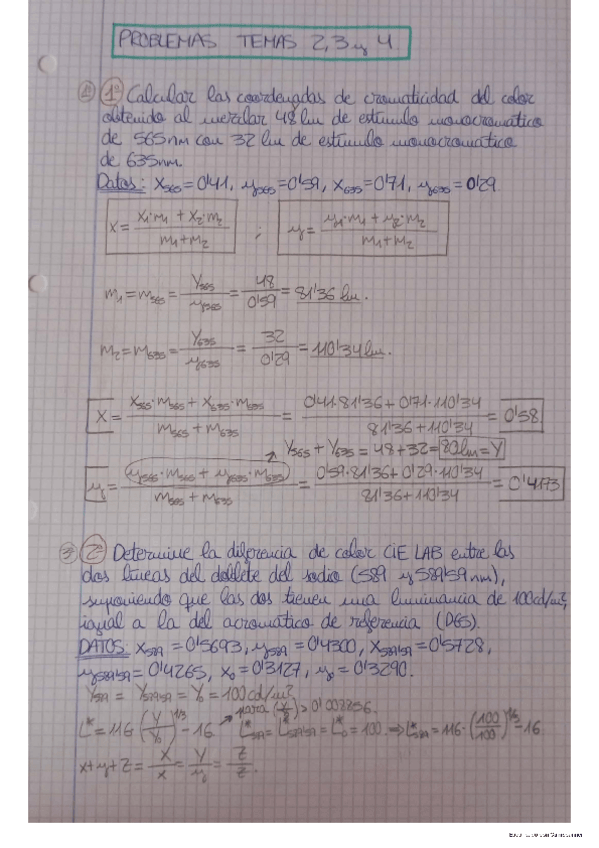 PROBLEMAS TEMAS 2,3 y 4
1º Calcular las coordenadas de cromaticidad del color
obtenido al mezclar 48 lm de estímulo monocromático
de 565nm con 32 lm de estímulo monocromático
de 635nm.
Datos: x565=0'41, y565=0'59, x635=0'71, y635=0'29
x= x1·m1 + x2·m2 / m1+m2 ; y= y1·m1 + y2·m2 / m1+m2
m1=m565= Y565/y565 = 48/0'59 = 81'36 lm.
m2=m635= Y635/y635 = 32/0'29 = 110'34 lm.
x= x565·m565 + x635·m635 / m565 + m635 = 0'41·81'36+0'71·110'34 / 81'36+110'34 = 0'58
Y565 + Y635 = 48+32= 80lm=Y
y= y565·m565 + y635·m635 / m565 + m635 = 0'59·81'36+0'29·110'34 / 81'36+110'34 = 0'4173
3 2º Determine la diferencia de color CIE LAB entre las
dos líneas del doblete del sodio (589 y 589'59 nm),
suponiendo que las dos tienen una luminancia de 100cd/m²,
igual a la del acromático de referencia (D65).
DATOS: x589 =0'5693, y589=0'4300, x589'59=0'5728,
y589'59=0'4265, x0=0'3127, y0=0'3290.
Y589 = Y589'59 = Y0 = 100cd/m²
para (Y/Y0)>0'008856.
L*=116 (Y/Y0)^1/3 -16 L*589=L*589'59=L*0=100. ⇒ L*589=116·(100/100)^1/3 -16
x+y+z= X/x = Y/y = Z/z.